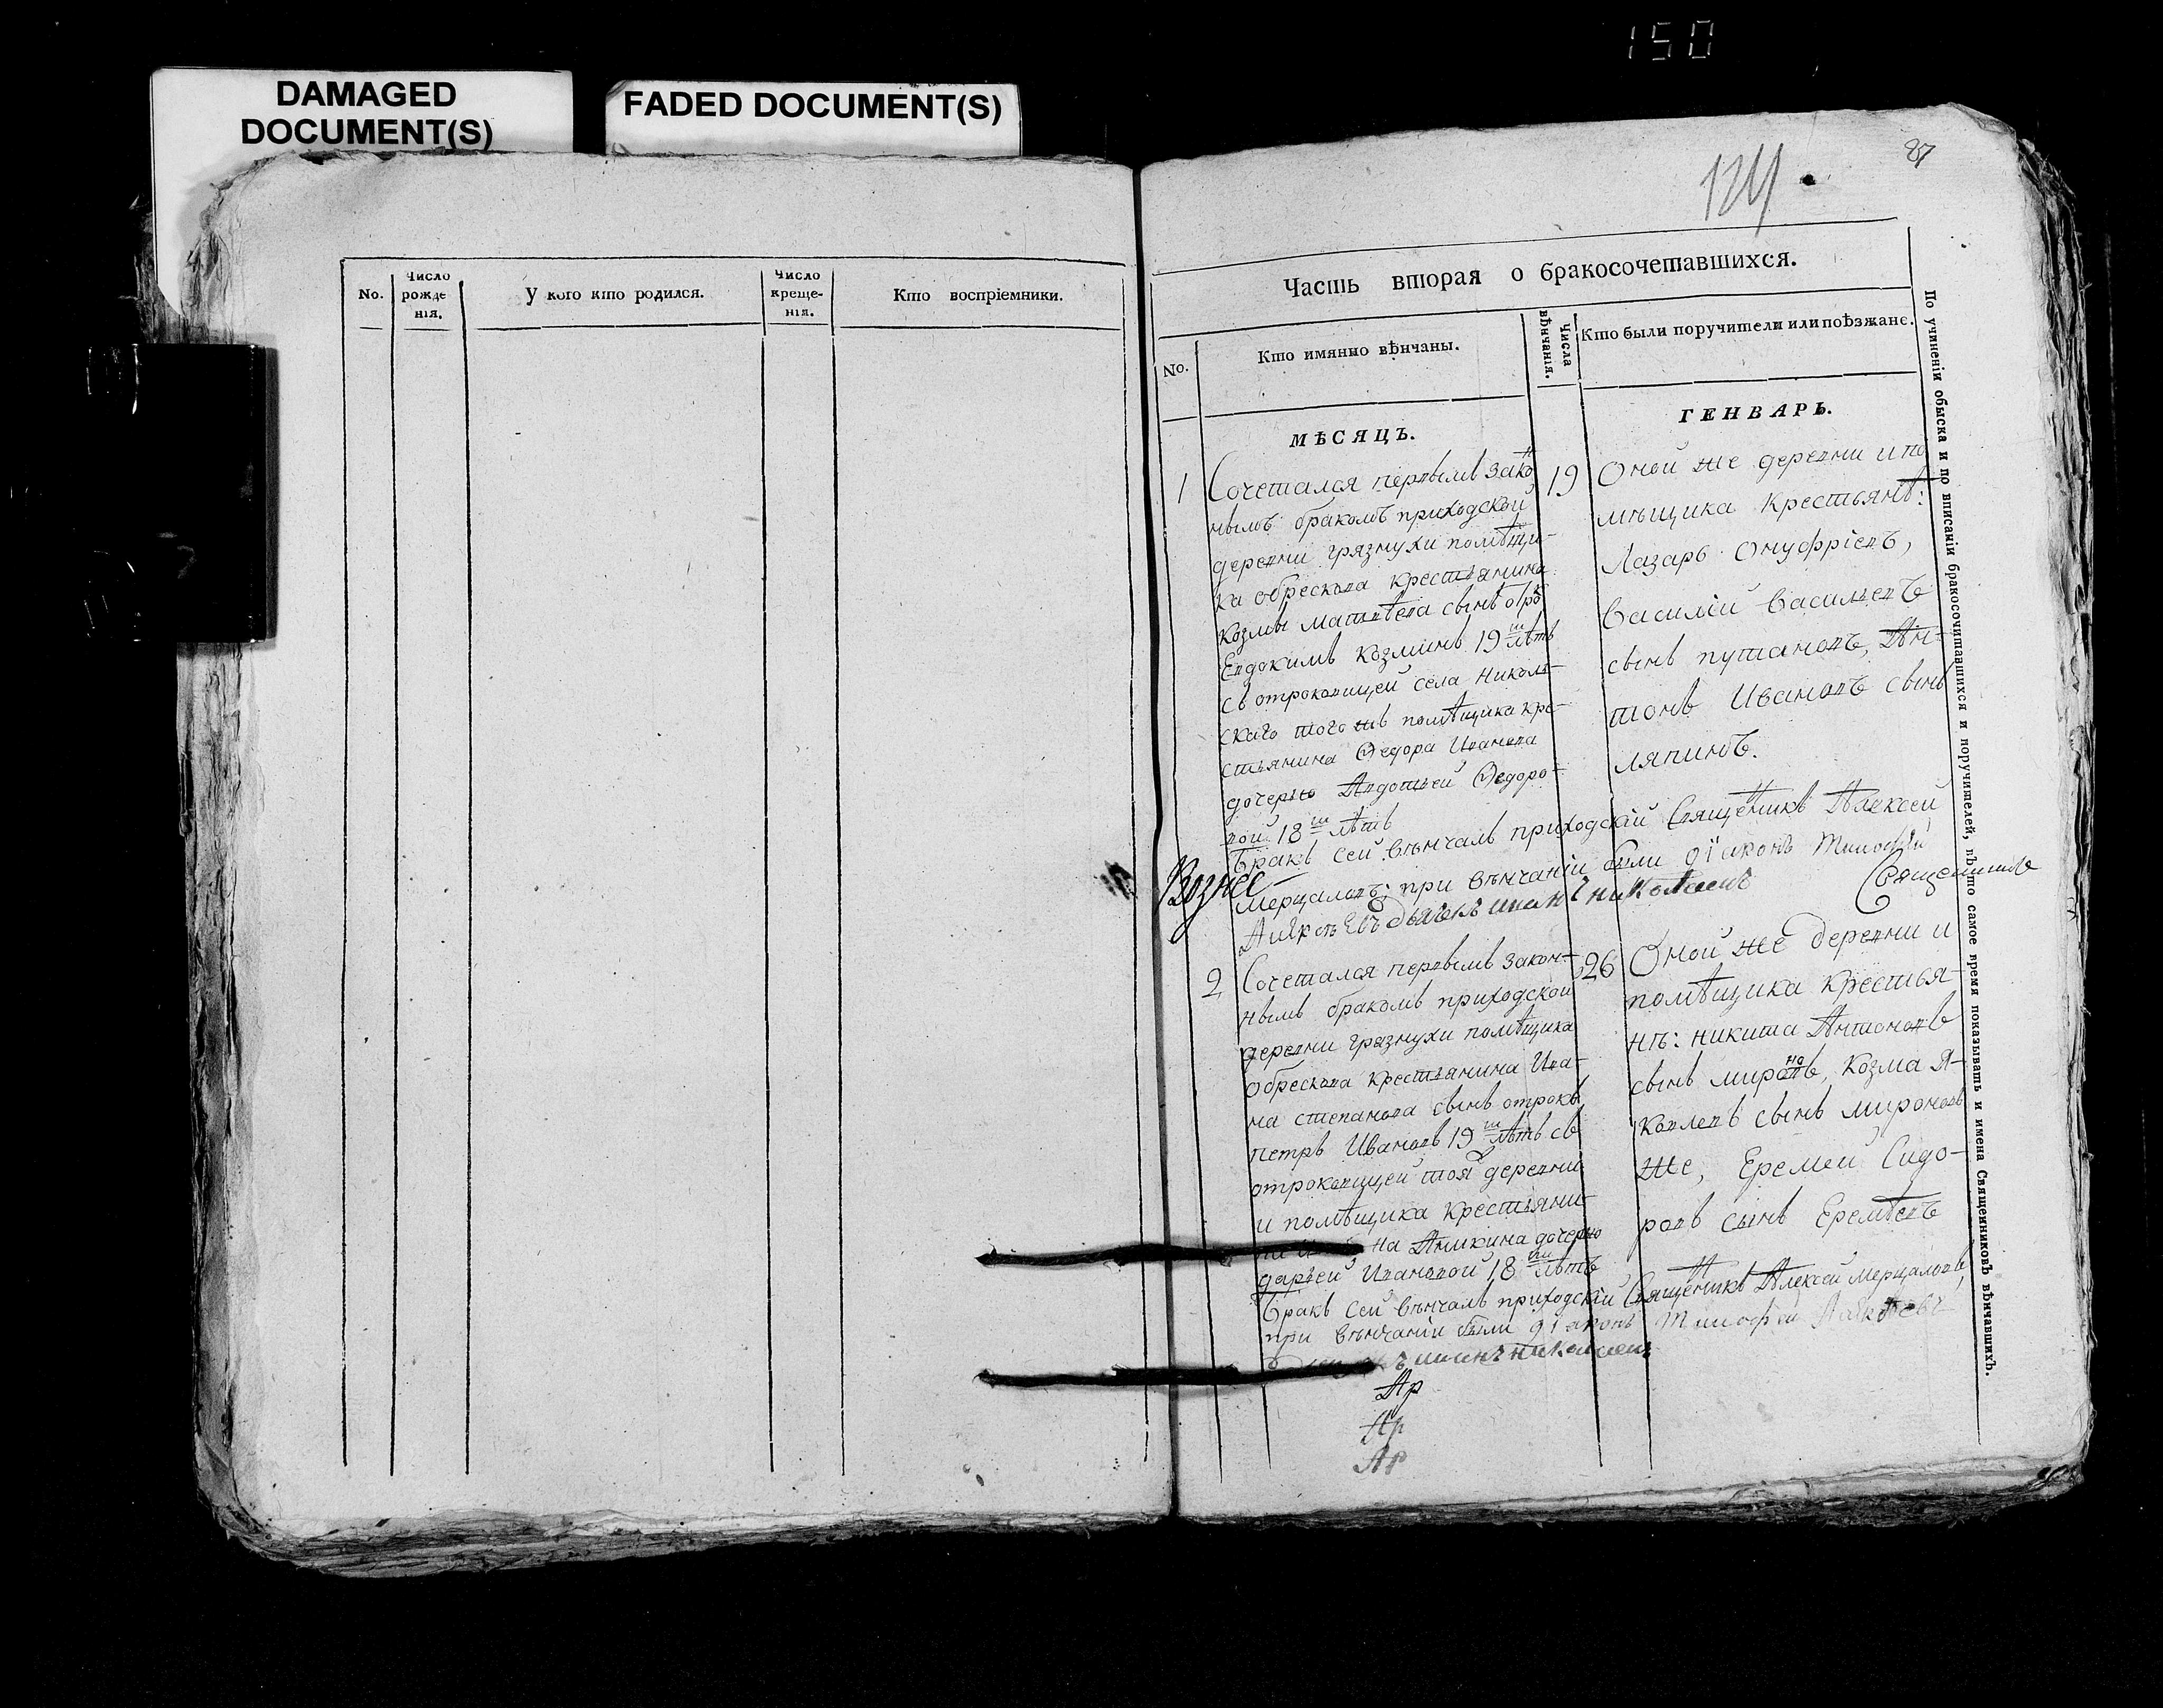 150
DAMAGED
DOCUMENT(S)
FADED DOCUMENT(S)
124
87
No.
Число
рожде
нія.
У кого кто родился.
Число
креще-
нія.
Кто воспріемники.
Часть вторая о бракосочетавшихся.
No.
Кто имянно вѣнчаны.
Числа
вѣнчанія.
Кто были поручители или поѣзжане.
МѢСЯЦЪ.
ГЕНВАРЬ.
1
Сочетался первымъ зако
нымъ бракомъ приходской
деревни грязнухи помѣщи-
ка обрескова крестьянина
Козмы матвѣева сынъ отрѡ
Евдокимъ Козминъ 19 ти лѣтъ
съ отроковицей села Николь-
скаго того жъ помѣщика кре-
стьянина Ѳедора Иванова
дочерью Авдотьей Ѳедоро-
вой 18 ти лѣтъ
19
Оной же деревни и по
мѣщика крестьянѣ:
Лазарь Онуфріевъ,
Василій Васильевъ
сынъ путановъ, Ан-
тонъ Ивановъ сынъ
ляпинъ.
Бракъ сей вѣнчалъ приходскій Священикъ Алексей
Мерцаловъ; при вѣнчаніи были діаконъ Тимофѣй
Вознес
Священникъ
2
Сочетался первымъ закон-
нымъ бракомъ приходской
деревни грязнухи помѣщика
обрескова крестьянина Ива-
на степанова сынъ отрокъ
петръ Ивановъ 19 ти лѣтъ съ
отроковицей тоя деревни
и помѣщика крестьяни-
на Аникина дочерью
дарьей Ивановой 18 ти лѣтъ
26
Оной же деревни и
помѣщика крестья-
нѣ: никита Антоновъ
сынъ мироновъ, Козма Я-
ковлевъ сынъ мироновъ
же, Еремей Сидо-
ровъ сынъ Еремѣевъ
Бракъ сей вѣнчалъ приходскій Священикъ Алексей Мерцаловъ,
при вѣнчаніи были діаконъ Тимофей
Ар
Ар
Ар
По учиненіи обыска и по вписаніи бракосочитавшихся и поручителей, въ то самое время показывать и имена Священниковъ вѣнчавшихъ.